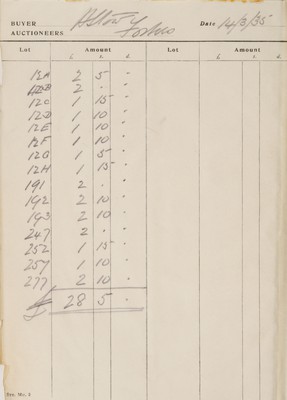 BUYER
AUCTIONEERS Date 14/3/35
Lot Amount Lot Amount
£. s. d. £. s. d.
12A 2 5 "
12B 2 " "
12C 1 15 "
12D 1 10 "
12E 1 10 "
12F 1 10 "
12G 1 5 "
12H 1 15 "
191 2 " "
192 2 10 "
193 2 10 "
247 2 " "
252 1 15 "
257 1 10 "
277 2 10 "
£ 28 5 "